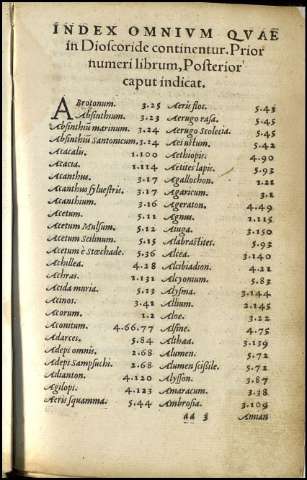 INDEX OMNIVM QVAE
in Dioscoride continentur. Prior
numeri librum, Posterior
caput indicat.
ABrotonum. 3.25
Absinthium. 3.23
Absinthiũ marinum. 3.24
Absinthiũ Santonicum. 3.24
Acacalis. 1.109
Acacia. 1.114
Acanthus. 3.17
Acanthus syluestris. 3.17
Acanthium. 3.16
Acetum. 5.11
Acetum Mulsum. 5.12
Acetum Scilinum. 5.15
Acetum è Stœchade. 5.36
Achillea. 4.28
Achras. 1.131
Acida muria. 5.13
Acinos. 3.42
Acorum. 1.2
Aconitum. 4.66.77
Adarces. 5.84
Adeps omnis. 2.68
Adeps Sampsuchi. 2.68
Adianton. 4.120
Agilops. 4.123
Aeris squamma. 5.44
Aeris flos. 5.43
Aerugo rasa. 5.45
Aerugo Scolecia. 5.45
Aes ustum. 5.42
Aethiopis. 4.90
Aetites lapis. 5.93
Agallochon. 1.21
Agaricum. 3.1
Ageraton. 4.49
Agnus. 1.115
Aiuga. 3.150
Alabrastites. 5.93
Alcea. 3.140
Alcibiadion. 4.21
Alcyonium. 5.83
Alysma. 3.144
Allium. 2.145
Aloe. 3.22
Alsine. 4.75
Althæa. 3.139
Alumen. 5.72
Alumen scissile. 5.72
Alysson. 3.87
Amaracum. 3.38
Ambrosia. 3.109
aa 3 Amian